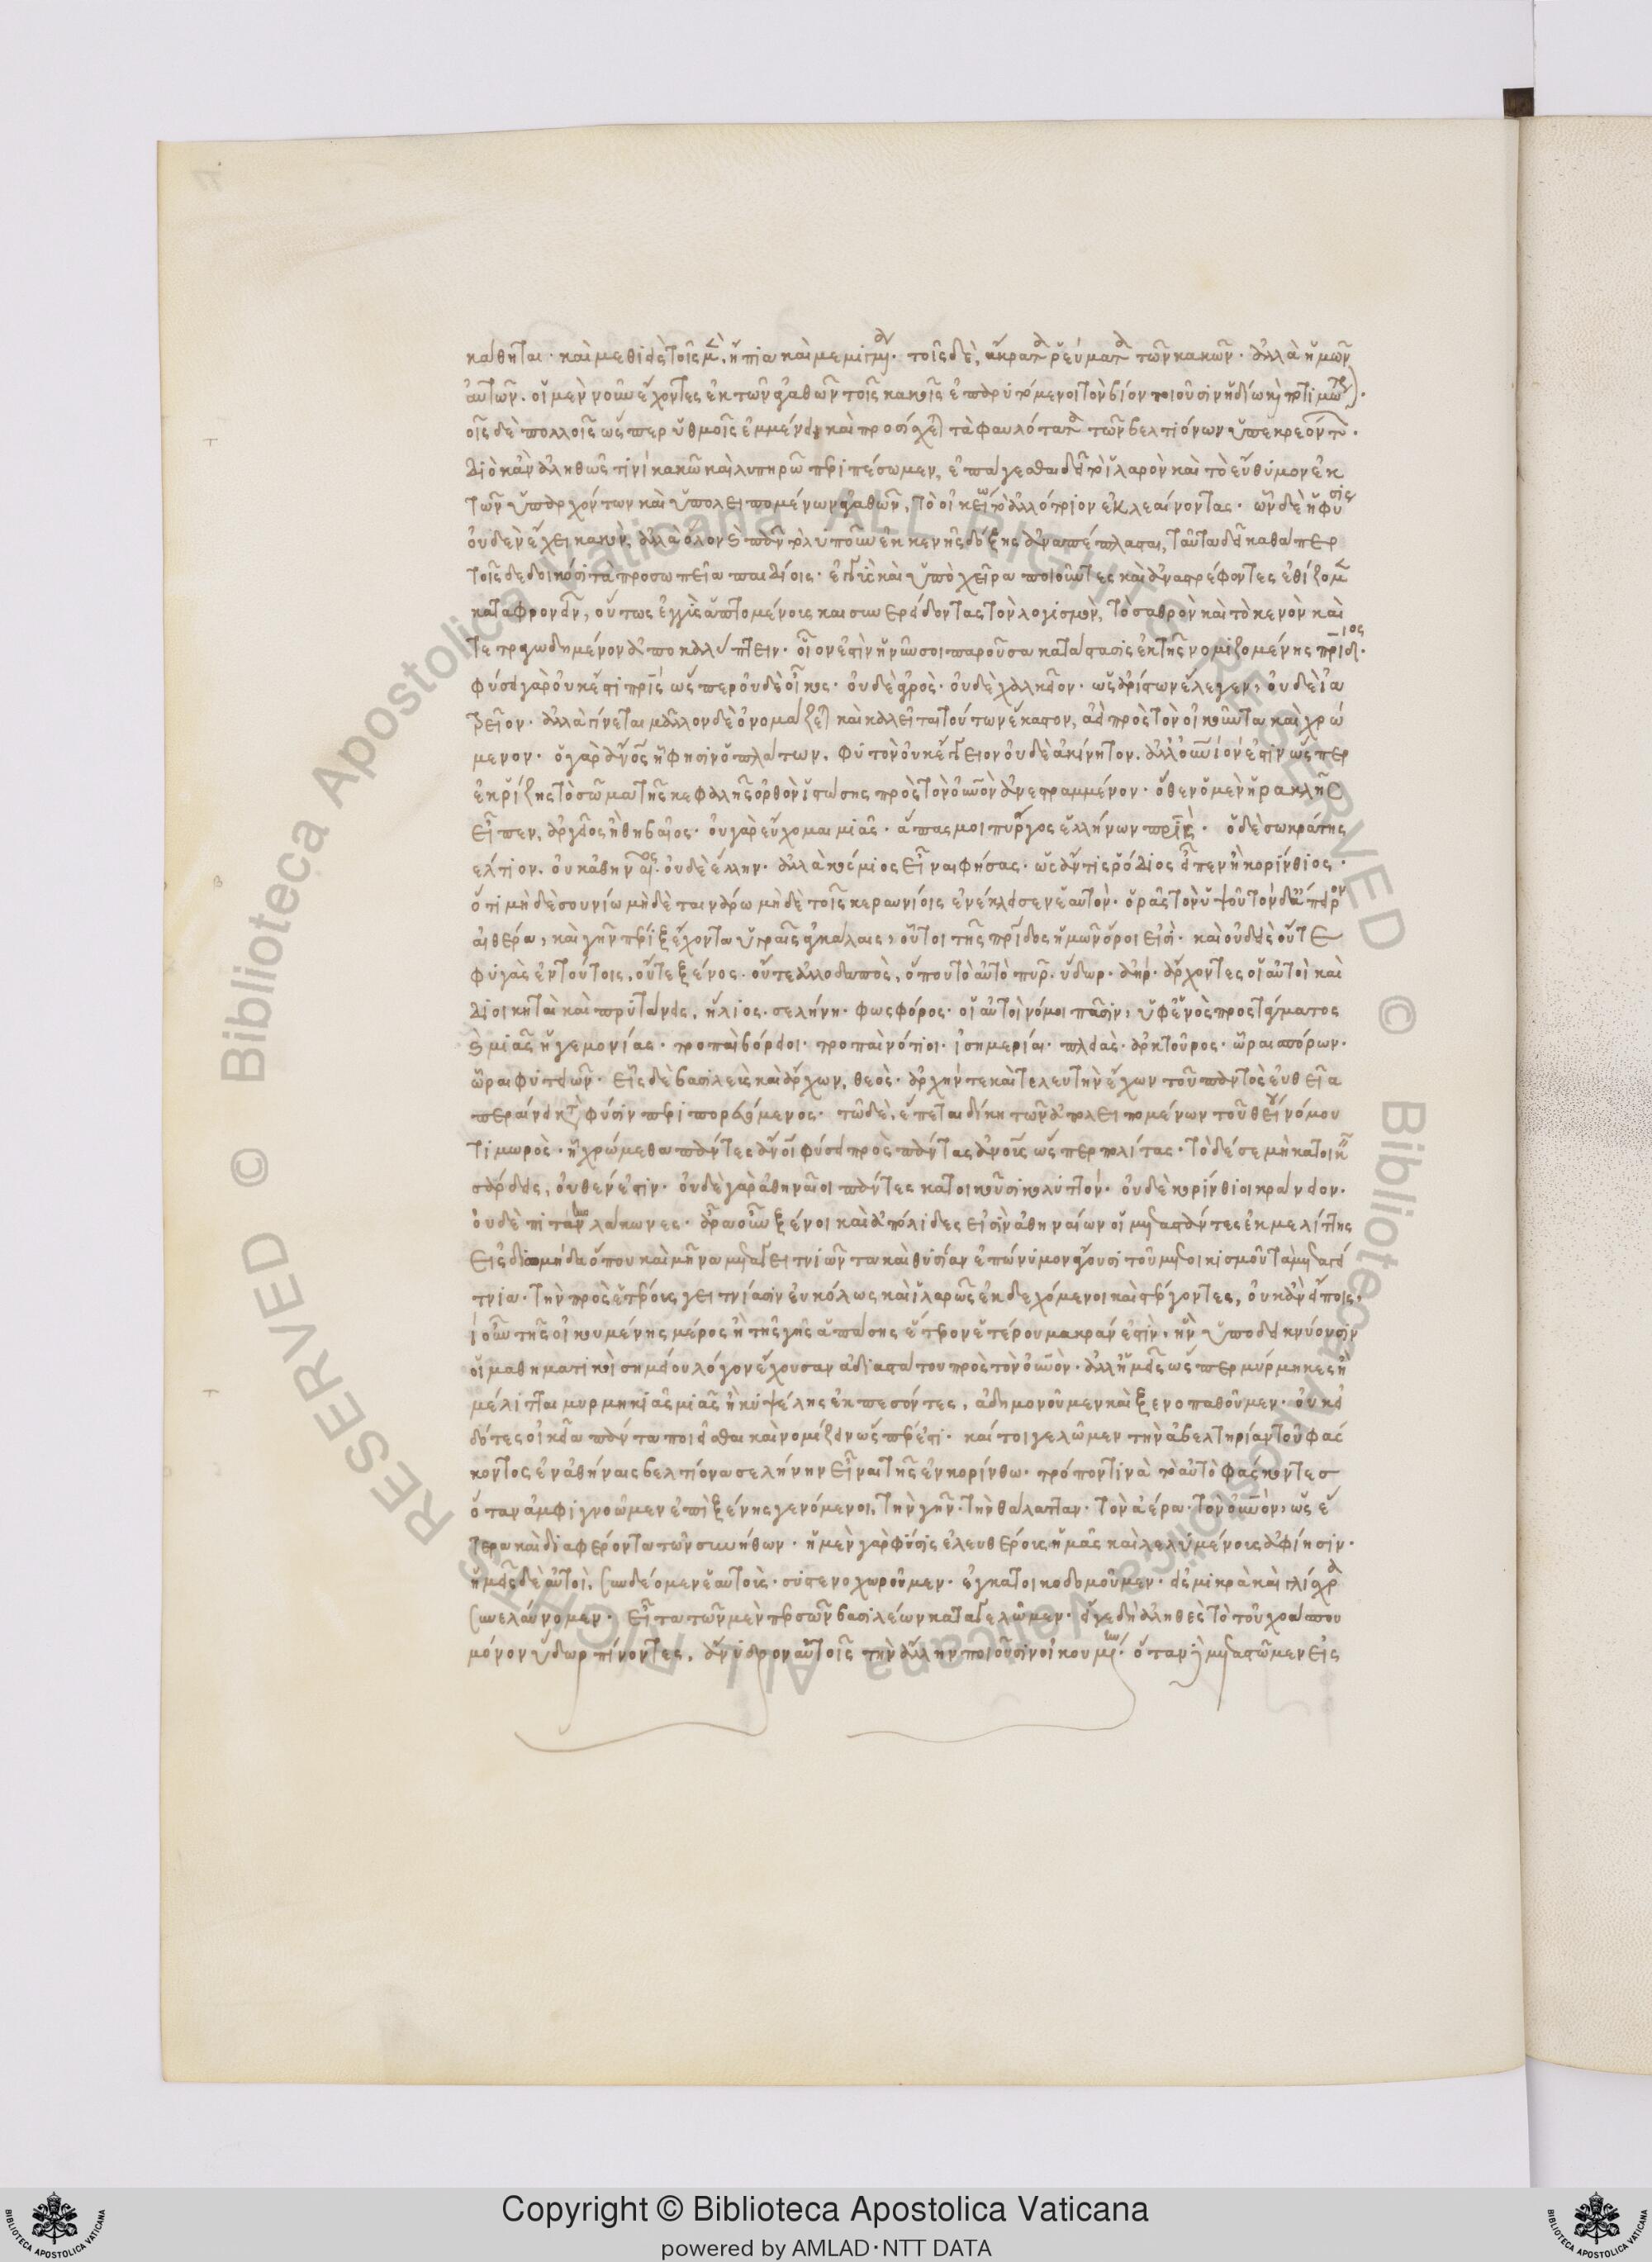 κάθηται· καὶ μεθίησι τοῖς μὲν, ἤπια καὶ μεμιγμένα· τοῖς δὲ, ἄκρατα ῥεύματα τῶν κακῶν· ἀλλὰ ἡμῶν
αὐτῶν. οἱ μὲν νοῦν ἔχοντες ἐκ τῶν ἀγαθῶν τοῖς κακοῖς ἐπαρυτόμενοι τὸν βίον ποιοῦσιν ἡδίω καὶ ποτιμώτερον.
τοῖς δὲ πολλοῖς ὥσπερ ἠθμοῖς ἐμμένει καὶ προσίσχεται τὰ φαυλότατα τῶν βελτιόνων ὑπεκρεόντων.
Διὸ κἂν ἀληθῶς τινὶ κακῶ καὶ λυπηρῶ περιπέσωμεν, ἐπάγεσθαι δεῖ τὸ ἱλαρὸν καὶ τὸ εὔθυμον ἐκ
τῶν ὑπαρχόντων καὶ ὑπολειπομένων ἀγαθῶν, τὸ οἰκείω τὸ ἀλλότριον ἐκλεαίνοντας· ὧν δὲ ἡ φύσις
οὐδὲν ἔχει κακὸν, ἀλλὰ ὅλον καὶ πᾶν τὸ λυποῦν ἐκ κενῆς δόξης ἀναπέπλασται, ταῦτα δεῖ καθάπερ
τοῖς δεδοικόσι τὰ προσωπεῖα παιδίοις· ἐγγὺς καὶ ὑπὸ χεῖρα ποιοῦντες καὶ ἀναστρέφοντες ἐθίζομεν
καταφρονεῖν, οὕτως ἐγγὺς ἁπτομένους καὶ συνερείδοντας τὸν λογισμὸν, τὸ σαθρὸν καὶ τὸ κενὸν καὶ
τετραγωδημένον ἀποκαλύπτειν. οἷον ἐστὶν ἡ νῦν σοι παροῦσα κατάστασις ἐκ τῆς νομιζομένης πατρίδος.
φύσει γὰρ οὐκ ἔστι πατρὶς ὥσπερ οὐδὲ οἶκος· οὐδὲ ἀγρὸς· οὐδὲ χαλκεῖον· ὡς ἀρίστων ἔλεγεν, οὐδὲ ἰα
τρεῖον· ἀλλὰ γίνεται μᾶλλον δὲ ὀνομάζεται καὶ καλεῖται τούτων ἕκαστον, ἀεὶ πρὸς τὸν οἰκοῦντα καὶ χρώ
μενον· ὁ γὰρ ἄνθρωπος ᾗ φησὶν ὁ πλάτων. φυτὸν οὐκ ἔγγειον οὐδὲ ἀκίνητον. ἀλλ' οὐράνιόν ἐστιν ὥσπερ
ἐκ ῥίζης τὸ σῶμα τῆς κεφαλῆς ὀρθὸν ἱστάσης πρὸς τὸν οὐρανὸν ἀνεστραμμένον· ὅθεν ὁ μὲν ἡρακλῆς
εἶπεν, ἀργεῖος ἢ θηβαῖος· οὐ γὰρ εὔχομαι μιᾶς· ἅπας μοι πύργος ἑλλήνων πατρίς· ὁ δὲ σωκράτης
ελτιον. οὐκ ἀθηναῖος· οὐδὲ ἕλλην· ἀλλὰ κόσμιος εἶναι φήσας· ὡς ἄν τις ῥόδιος εἶπεν ἢ κορίνθιος.
ὅτι μηδὲ σουνίω μηδὲ ταινάρω μηδὲ τοῖς κεραυνίοις ἐνέκλεισεν ἑαυτόν· ὁρᾶς τὸν ὑψοῦ τόνδ' ἄπειρον
αἰθέρα, καὶ γῆν πέριξ ἔχοντα ὑγραῖς ἀγκάλαις, οὗτοι τῆς πατρίδος ἡμῶν ὅροι εἰσὶ· καὶ οὐδεὶς οὔτε
φυγὰς ἐν τούτοις, οὔτε ξένος· οὔτε ἀλλοδαπὸς, ὅπου τὸ αὐτὸ πῦρ. ὕδωρ. ἀὴρ. ἄρχοντες οἱ αὐτοὶ καὶ
διοικηταὶ καὶ πρυτάνεις, ἥλιος. σελήνη. φωσφόρος· οἱ αὐτοὶ νόμοι πᾶσιν, ὑφ' ἑνὸς προστάγματος
καὶ μιᾶς ἡγεμονίας. τροπαὶ βόρειοι. τροπαὶ νότιοι. ἰσημερίαι. πλειὰς. ἀρκτοῦρος. ὧραι σπόρων.
ὧραι φυτειῶν. εἷς δὲ βασιλεὺς καὶ ἄρχων, θεὸς· ἀρχήν τε καὶ τελευτὴν ἔχων τοῦ παντὸς εὐθεῖα
περαίνει κατὰ φύσιν περιπορευόμενος· τῶ δὲ, ἕπεται δίκη τῶν ἀπολειπομένων τοῦ θείου νόμου
τιμωρὸς· ᾗ χρώμεθα πάντες ἄνθρωποι φύσει πρὸς πάντας ἀνθρώπους ὥσπερ πολίτας. τὸ δέ σε μὴ κατοικεῖν
σάρδεις, οὐθέν ἐστιν. οὐδὲ γὰρ ἀθηναῖοι πάντες κατοικοῦσι κολυττόν· οὐδὲ κορίνθιοι κράνειον.
οὐδὲ πιτάνην λάκωνες. ἆρα οὖν ξένοι καὶ ἀπόλιδες εἰσὶν ἀθηναίων οἱ μεταστάντες ἐκ μελίτης
εἰς διωμήδα ὅπου καὶ μῆνα μεταγειτνιῶνα καὶ θυσίαν ἐπώνυμον ἄγουσι τοῦ μετοικισμοῦ τὰ μεταγεί
τνια. τὴν πρὸς ἑτέρους γειτνίασιν εὐκόλως καὶ ἱλαρῶς ἐκδεχόμενοι καὶ στέργοντες, οὐκ ἂν εἴποις,
οὖν τῆς οἰκουμένης μέρος ἢ τῆς γῆς ἁπάσης ἕτερον ἑτέρου μακράν ἐστιν. ἣν ὑποδεικνύουσιν
οἱ μαθηματικοὶ σημείου λόγον ἔχουσαν ἀδιαστάτου πρὸς τὸν οὐρανὸν· ἀλλ' ἡμεῖς ὥσπερ μύρμηκες ἢ
μέλιτται μυρμηκιᾶς μιᾶς ἢ κυψέλης ἐκπεσόντες, ἀδημονοῦμεν καὶ ξενοπαθοῦμεν· οὐκ εἰ
δότες οἰκεῖα πάντα ποιεῖσθαι καὶ νομίζειν ὥσπερ ἐστι· καίτοι γελῶμεν τὴν ἀβελτηρίαν τοῦ φάς
κοντος ἐν ἀθήναις βελτίονα σελήνην εἶναι τῆς ἐν κορίνθω· τρόπον τινὰ τὸ αὐτὸ φάσκοντες
ὅταν ἀμφιγνοῶμεν ἐπὶ ξένης γενόμενοι, τὴν γῆν· τὴν θάλατταν· τὸν ἀέρα· τὸν οὐρανὸν, ὡς ἕ
τερα καὶ διαφέροντα τῶν συνήθων· ἡ μὲν γὰρ φύσις ἐλευθέρους ἡμᾶς καὶ λελυμένους ἀφίησιν·
ἡμεῖς δὲ αὐτοὶ, συνδέομεν ἑαυτοὺς· συστενοχωροῦμεν· ἐγκατοικοδομοῦμεν· εἰς μικρὰ καὶ γλίσχρα
συνελαύνομεν. εἶτα τῶν μὲν περσῶν βασιλέων καταγελῶμεν· εἴγε δὴ ἀληθὲς τὸ τοῦ χοάσπου
μόνον ὕδωρ πίνοντες, ἄνυδρον αὑτοῖς τὴν ἄλλην ποιοῦσιν οἰκουμένην. ὅταν δὲ μεταστῶμεν εἰς
© Biblioteca Apostolica Vaticana ALL RIGHTS RESERVED © Biblioteca Apostolica Vaticana ALL RIGHTS RESERVED
Copyright © Biblioteca Apostolica Vaticana
powered by AMLAD·NTT DATA
BIBLIOTECA APOSTOLICA VATICANA
BIBLIOTECA APOSTOLICA VATICANA